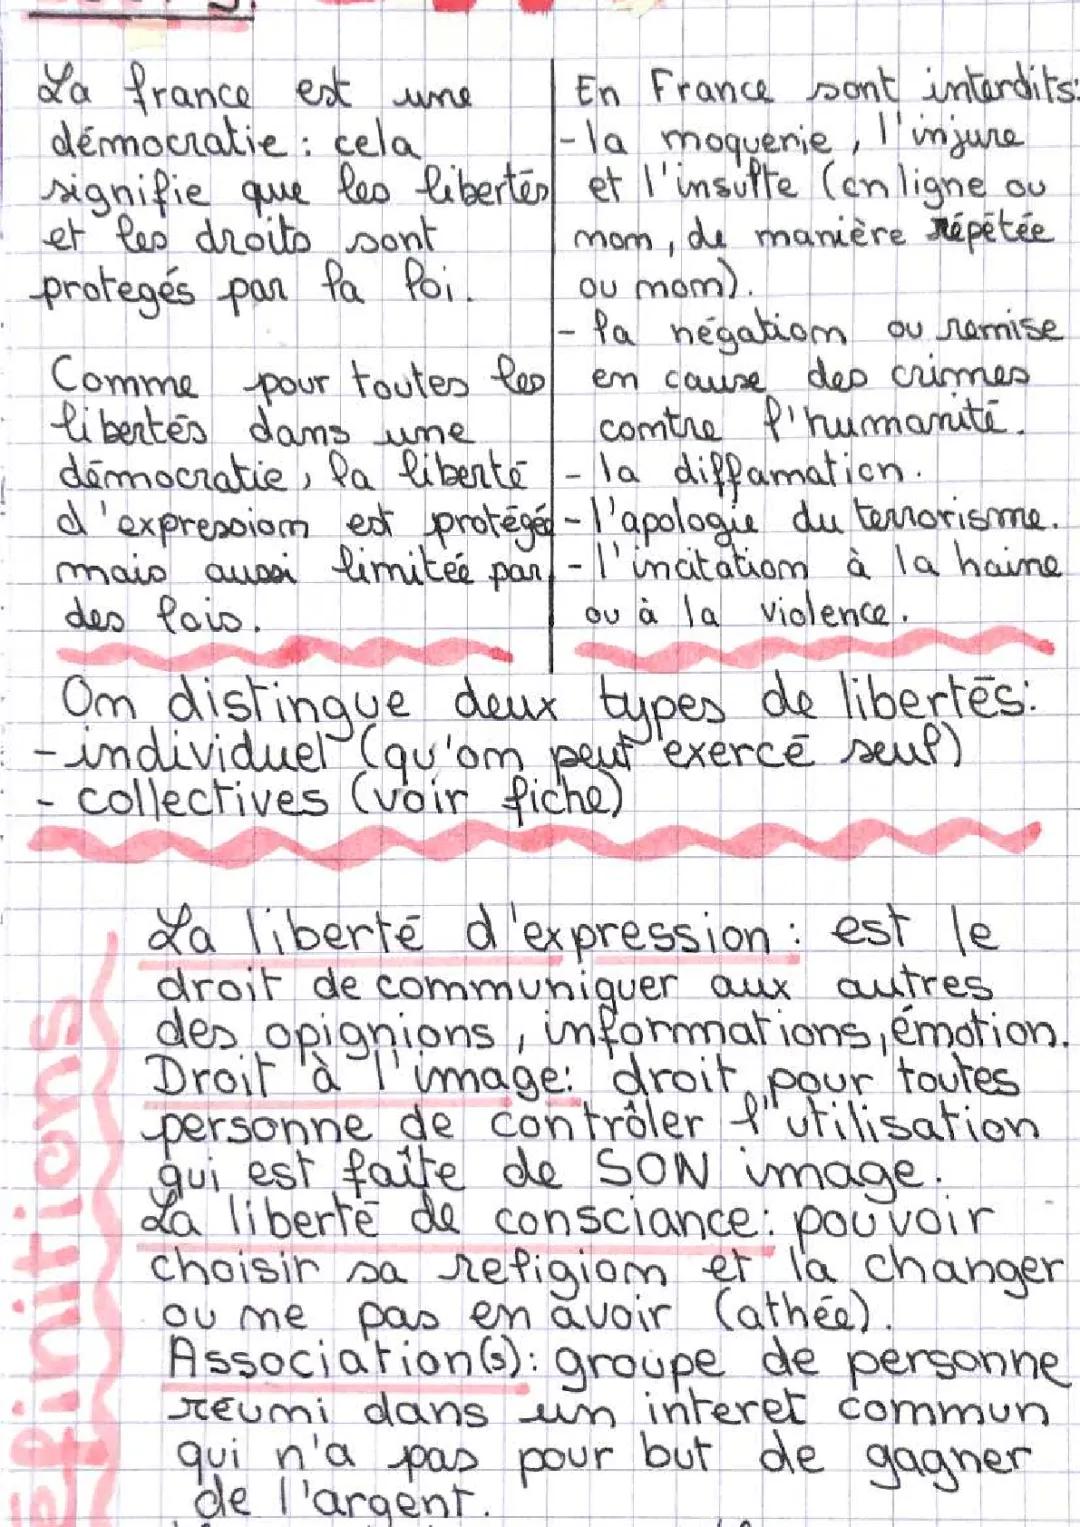 La france est une
démocratie : cela
signifie que les libertés
et les droits sont
protegés par la loi.
Comme pour toutes les
libertés dans une
démocratie, la liberté
d'expression est protégée
mais aussi limitée par
des lois.
En France sont interdits:
- la moquerie, l'injure
et l'insulte (en ligne ou
non, de manière répétée
ou non).
- la négation ou remise
en cause des crimes
contre l'humanité.
- la diffamation.
- l'apologie du terrorisme.
- l'incitation à la haine
ou à la violence.
On distingue deux types de libertés:
- individuel (qu'on peut exercé seul)
- collectives (voir fiche)
La liberté d'expression : est le
droit de communiquer aux autres
des opignions, informations, émotion.
Droit à l'image: droit pour toutes
personne de contrôler l'utilisation
qui est faîte de SON image.
La liberté de consciance: pouvoir
choisir sa religion et la changer
ou ne pas en avoir (athée).
Association(s): groupe de personne
réuni dans un interet commun
qui n'a pas pour but de gagner
de l'argent.
éfinitions